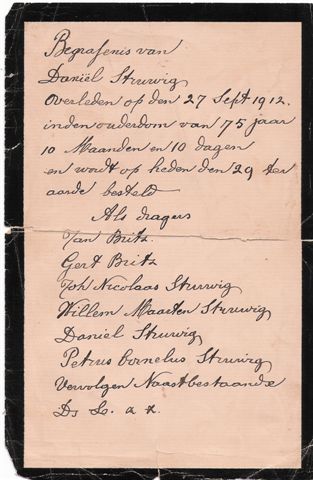 Begrafenis van
Daniël Struwig
overleden op den 27 Sept 1912.
in den ouderdom van 75 jaar
10 Maanden en 10 dagen
en wordt op heden den 29 ter
aarde besteld
Als dragers
Jan Britz.
Gert Britz
Joh Nicolaas Struwig
Willem Maarten Struwig
Daniel Struwig
Petrus Cornelus Struwig
Vervolgen Naastbestaande
Ds